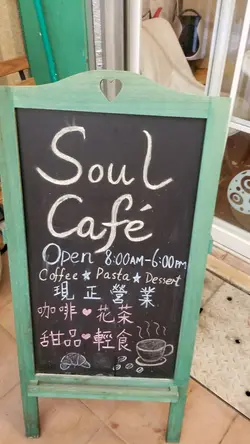 Soul
Café
Open 8:00AM-6:00PM
Coffee★Pasta★Dessert
現正營業
咖啡❤花茶
甜品❤輕食